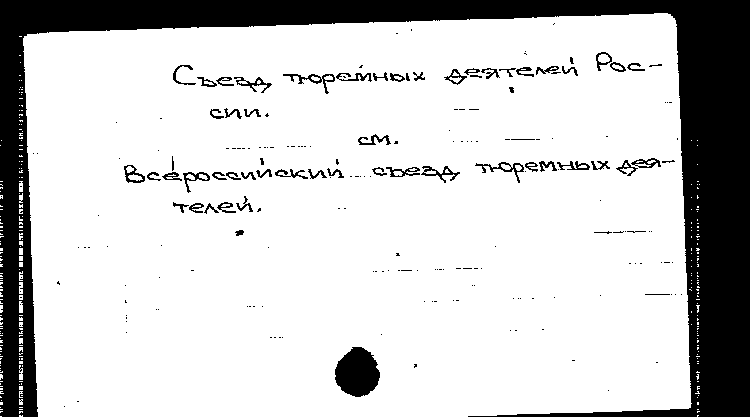 Съезд тюремных деятелей Рос-
сии.
см.
Всероссийский съезд тюремных дея-
телей.